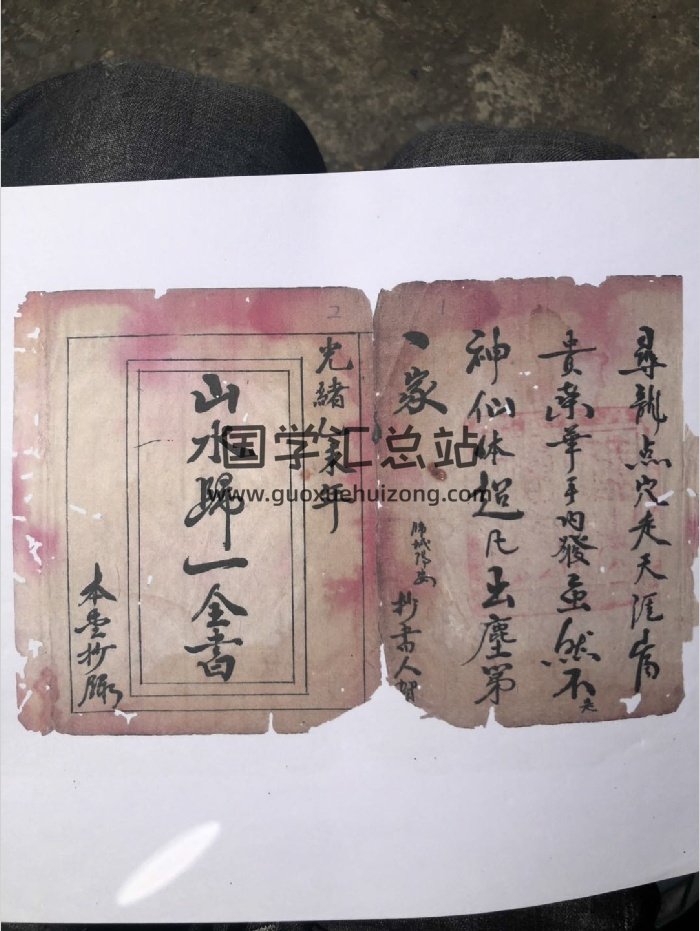 1
尋龍点穴走天涯富
貴榮華手內發虽然不是
神仙体超凡出塵第
一家
抄書人
2
光緒年
山水歸一全書
本堂抄録
国学汇总站
www.guoxuehuizong.com